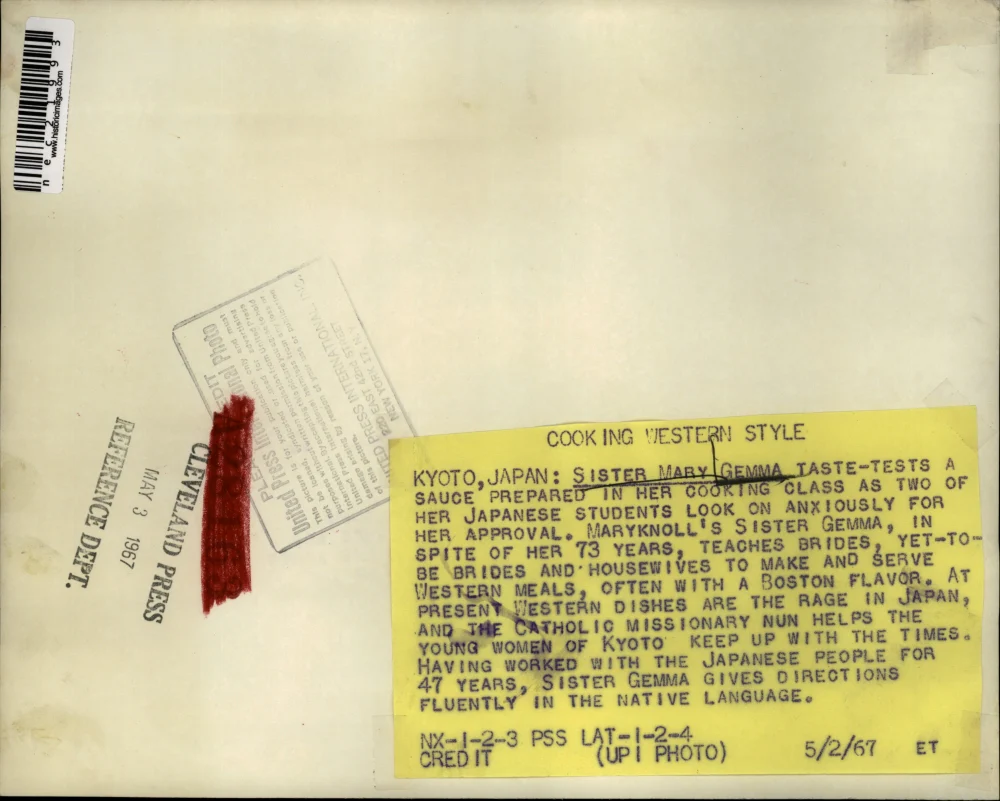 nec21993
www.historicimages.com
United Press International Photo
UNITED PRESS INTERNATIONAL, INC.
220 EAST 42nd STREET
NEW YORK 17, N.Y.
CLEVELAND PRESS
MAY 3 1967
REFERENCE DEPT.
COOKING WESTERN STYLE
KYOTO, JAPAN: SISTER MARY GEMMA TASTE-TESTS A
SAUCE PREPARED IN HER COOKING CLASS AS TWO OF
HER JAPANESE STUDENTS LOOK ON ANXIOUSLY FOR
HER APPROVAL. MARYKNOLL'S SISTER GEMMA, IN
SPITE OF HER 73 YEARS, TEACHES BRIDES, YET-TO-
BE BRIDES AND HOUSEWIVES TO MAKE AND SERVE
WESTERN MEALS, OFTEN WITH A BOSTON FLAVOR. AT
PRESENT WESTERN DISHES ARE THE RAGE IN JAPAN,
AND THE CATHOLIC MISSIONARY NUN HELPS THE
YOUNG WOMEN OF KYOTO KEEP UP WITH THE TIMES.
HAVING WORKED WITH THE JAPANESE PEOPLE FOR
47 YEARS, SISTER GEMMA GIVES DIRECTIONS
FLUENTLY IN THE NATIVE LANGUAGE.
NX-1-2-3 PSS LAT-1-2-4
CREDIT (UPI PHOTO) 5/2/67 ET